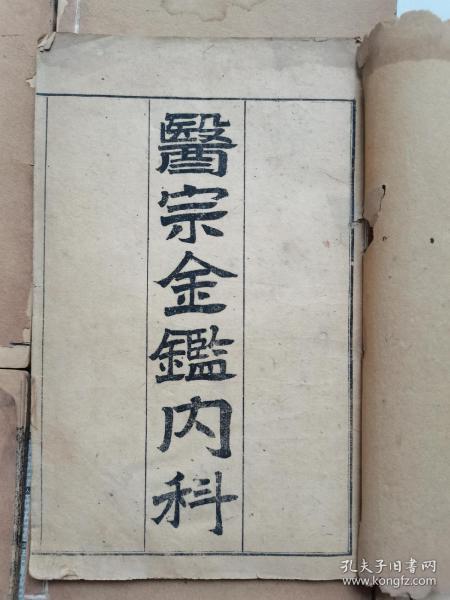 醫宗金鑑内科
孔夫子旧书网
www.kongfz.com